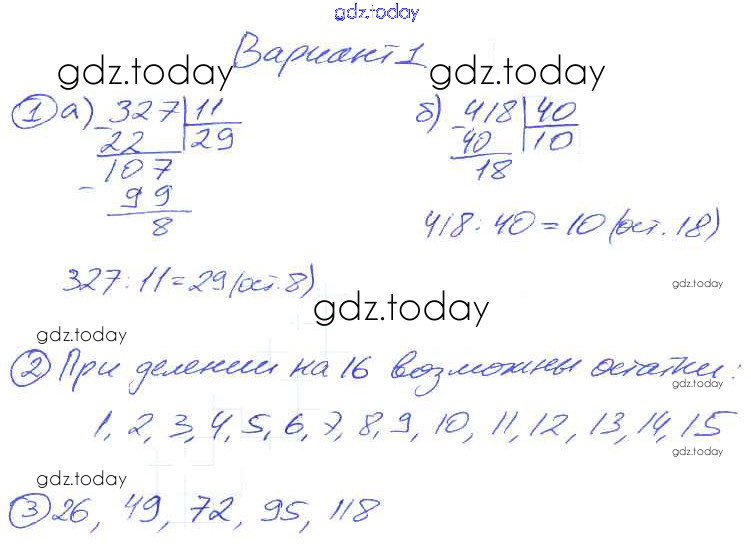 gdz.today
Вариант 1
gdz.today gdz.today
① а) 327 | 11 б) 418 | 40
22 29 40 10
107 18
99
8 418 : 40 = 10 (ост. 18)
327 : 11 = 29 (ост. 8)
gdz.today
gdz.today
gdz.today
② При делении на 16 возможны остатки:
gdz.today
1, 2, 3, 4, 5, 6, 7, 8, 9, 10, 11, 12, 13, 14, 15
gdz.today
gdz.today
③ 26, 49, 72, 95, 118
gdz.today
gdz.today